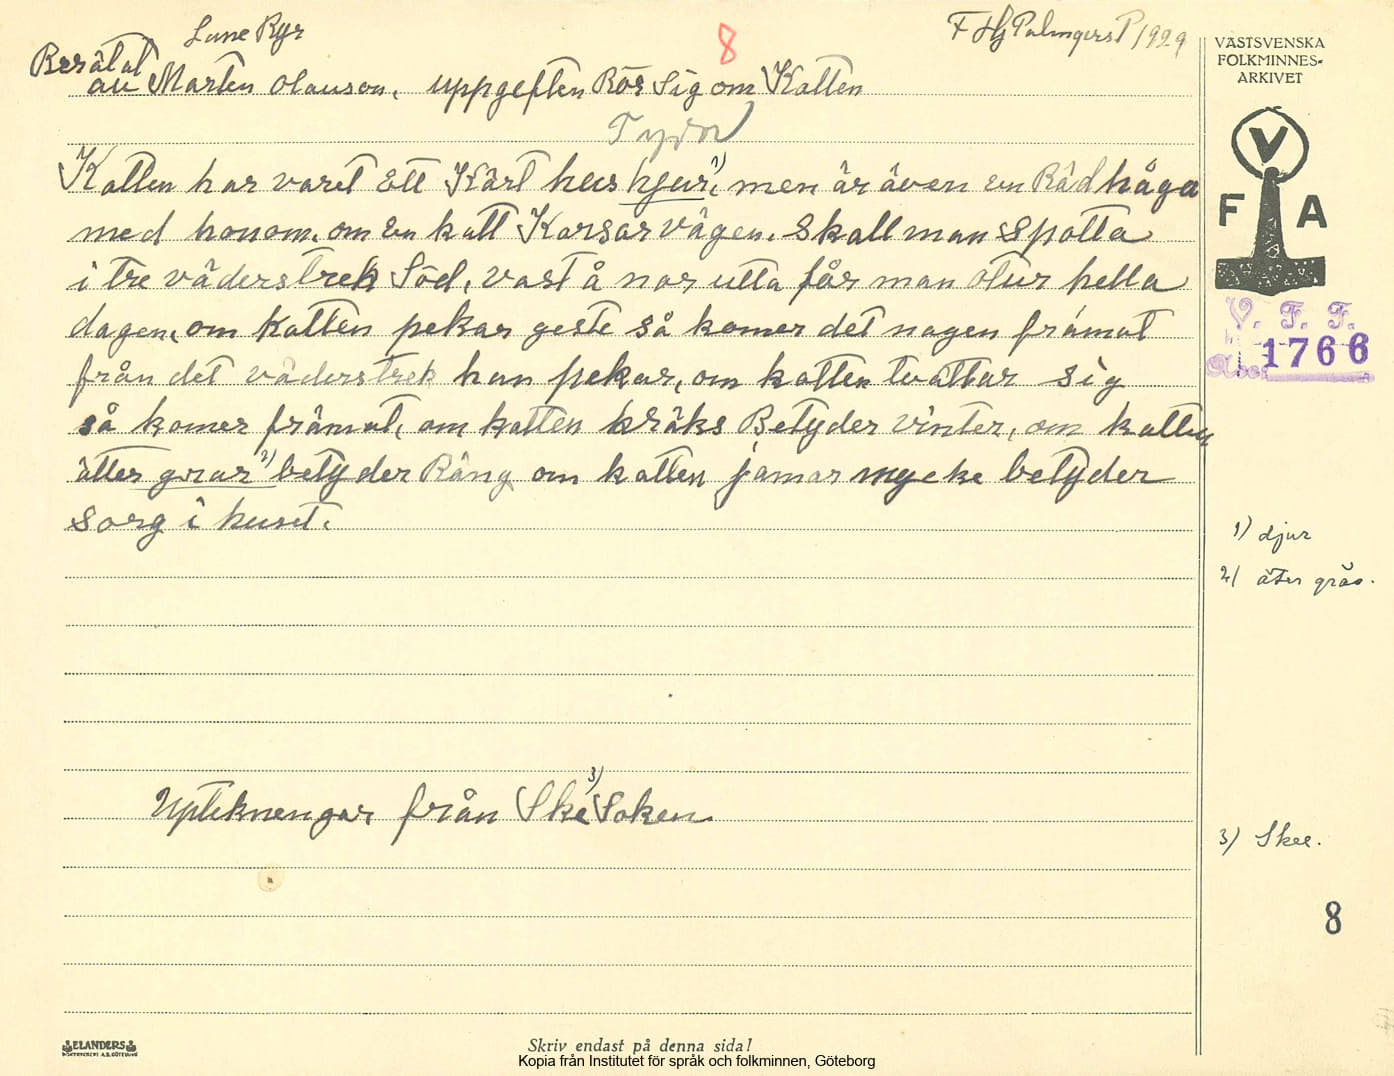 Lane Ryr
8
F Hj Palmqvist 1929
Berättat
av Marten Olauson, uppgeften Rör Sig om Katten
Tydor
Katten har varet Ett Kärt huskjur, 1) men är även en Rådhåga
med honom, om En katt Korsar vägen, skall man Spotta
i tre väderstrek Söd, vast å nor utta får man otur hella
dagen, om katten pekar geste så komer det nagen frámat
från det väderstrek han pekar, om katten tvättar sig
så komer främat, om katten kräks Betyder vinter, om katten
ätter grar 2) betyder Räng om katten jamar mycke betyder
sorg i huset.
Upteknengar från Ske 3) Soken.
VÄSTSVENSKA
FOLKMINNES-
ARKIVET
V
F A
V. F. F.
1766
1) djur
2) äter gräs.
3) Skee.
8
ELANDERS
Skriv endast på denna sida!
Kopia från Institutet för språk och folkminnen, Göteborg